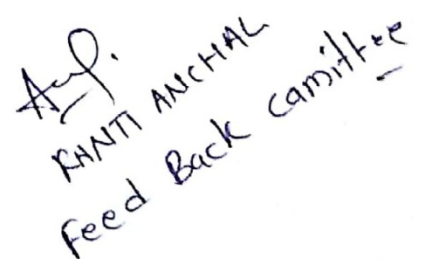 KANTI ANCHAL
Feed Back camittee